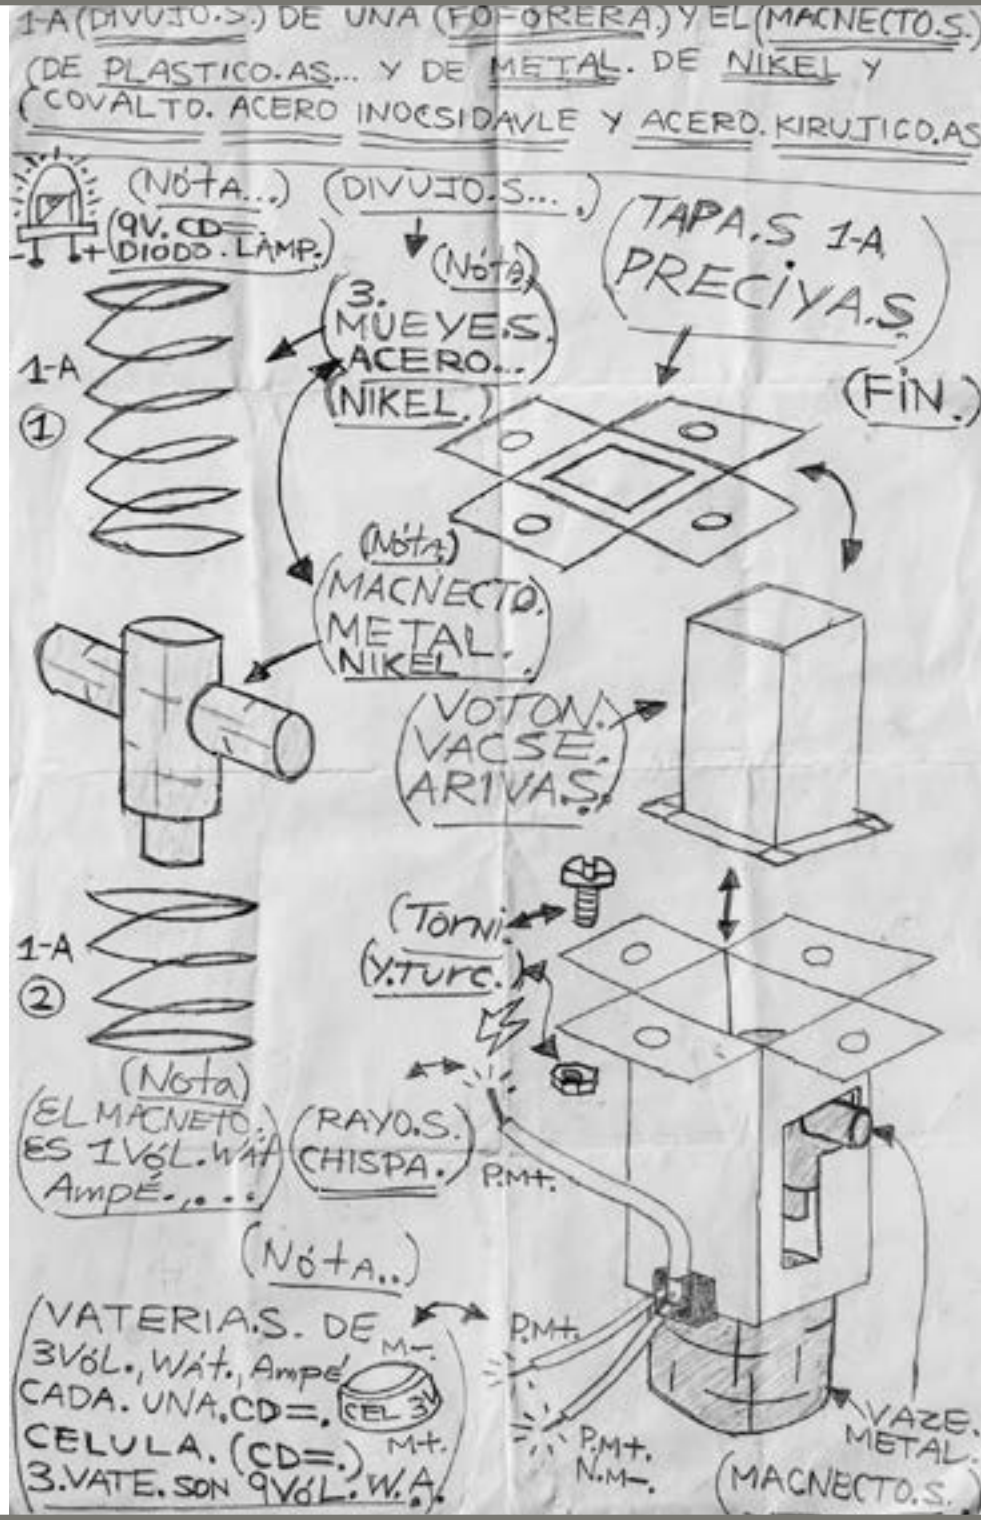 1-A (DIVUJO.S.) DE UNA (FOFORERA.) Y EL (MACNECTO.S.)
(DE PLASTICO.AS... Y DE METAL. DE NIKEL Y
(COVALTO. ACERO INOCSIDAVLE Y ACERO. KIRUJICO.AS
(NótA...)
(9V. CD=.
DIODO. LÀMP.)
- +
(DIVUJO.S....)
(NótA)
(3.
MUEYE.S.
ACERO...
(NIKEL.)
(TAPA.S 1-A
PRECIYA.S)
(FIN.)
1-A
1
(NótA)
(MACNECTO.
METAL.
NIKEL)
(VOTON.
VACSE.
ARIVA.S.)
1-A
2
(Torni.
(Y.Turc.)
(Nota)
(EL MACNETO.
ES 1 VóL. WÁt
AmpÉ.,...)
(RAYO.S.
CHISPA.)
P.M+.
(NótA..)
(VATERIA.S. DE
3VóL., WÁt., Ampé
CADA. UNA. CD=.
CELULA. (CD=.)
3. VATE. SON 9VóL. W.A.)
M-.
CEL 3V
M+.
P.M+.
P.M+.
N.M-.
VAZE.
METAL.
(MACNECTO.S.)